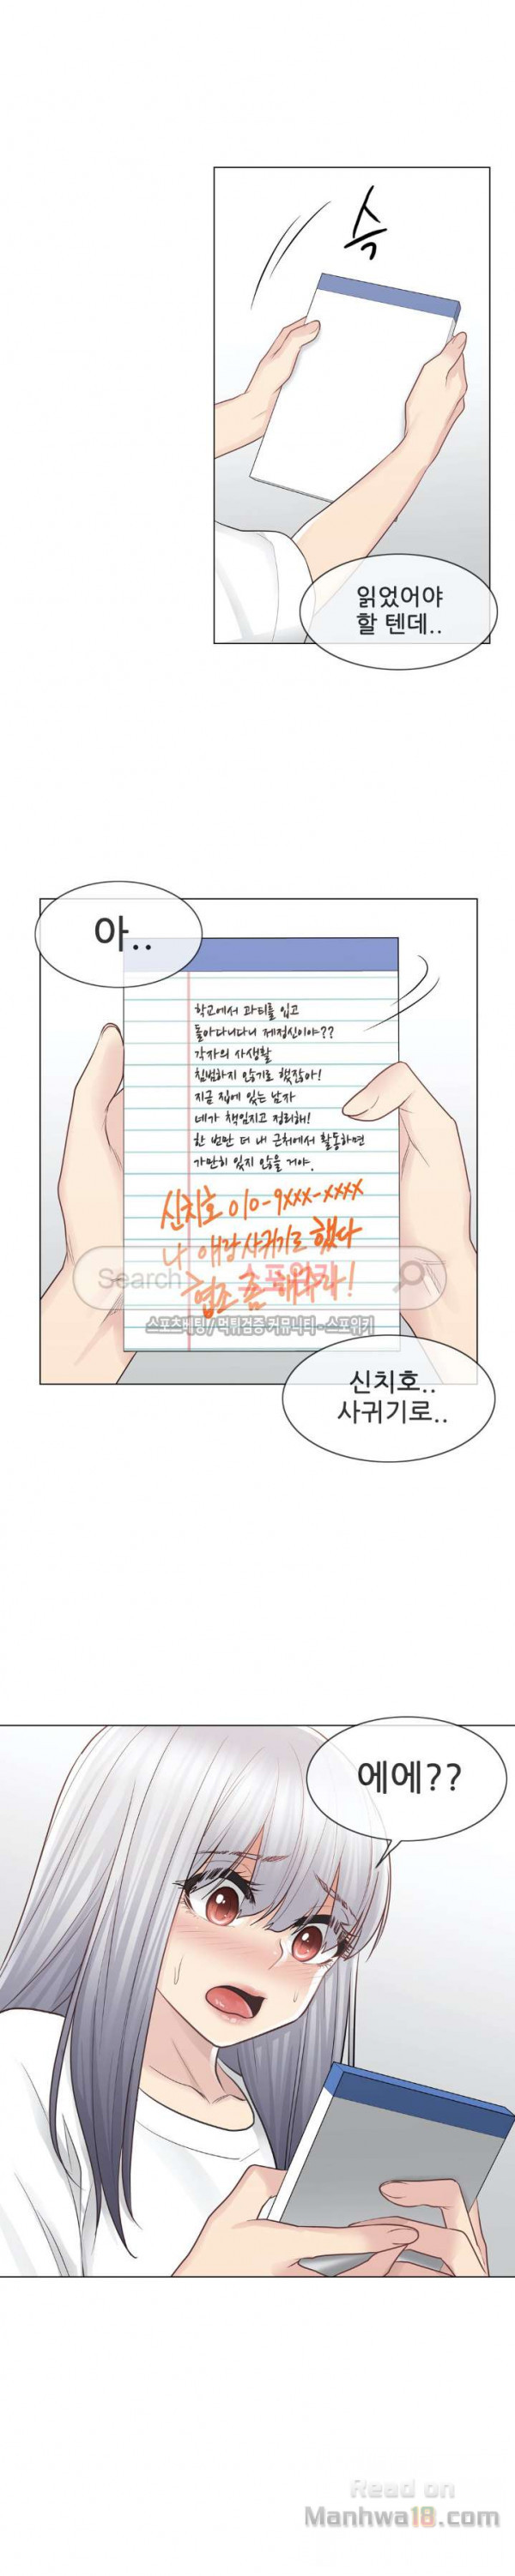 슥
읽었어야
할 텐데..
아..
학교에서 과티를 입고
돌아다니다니 제정신이야??
각자의 사생활
침범하지 않기로 했잖아!
지금 집에 있는 남자
네가 책임지고 정리해!
한 번만 더 내 근처에서 활동하면
가만히 있지 않을 거야.
신치호 010-9XXX-XXXX
나 얘랑 사귀기로 했다
Search 스포위키
협조 좀 해주라!
스포츠베팅 / 먹튀검증 커뮤니티 - 스포위키
신치호..
사귀기로..
에에??
Read on
Manhwa18.com